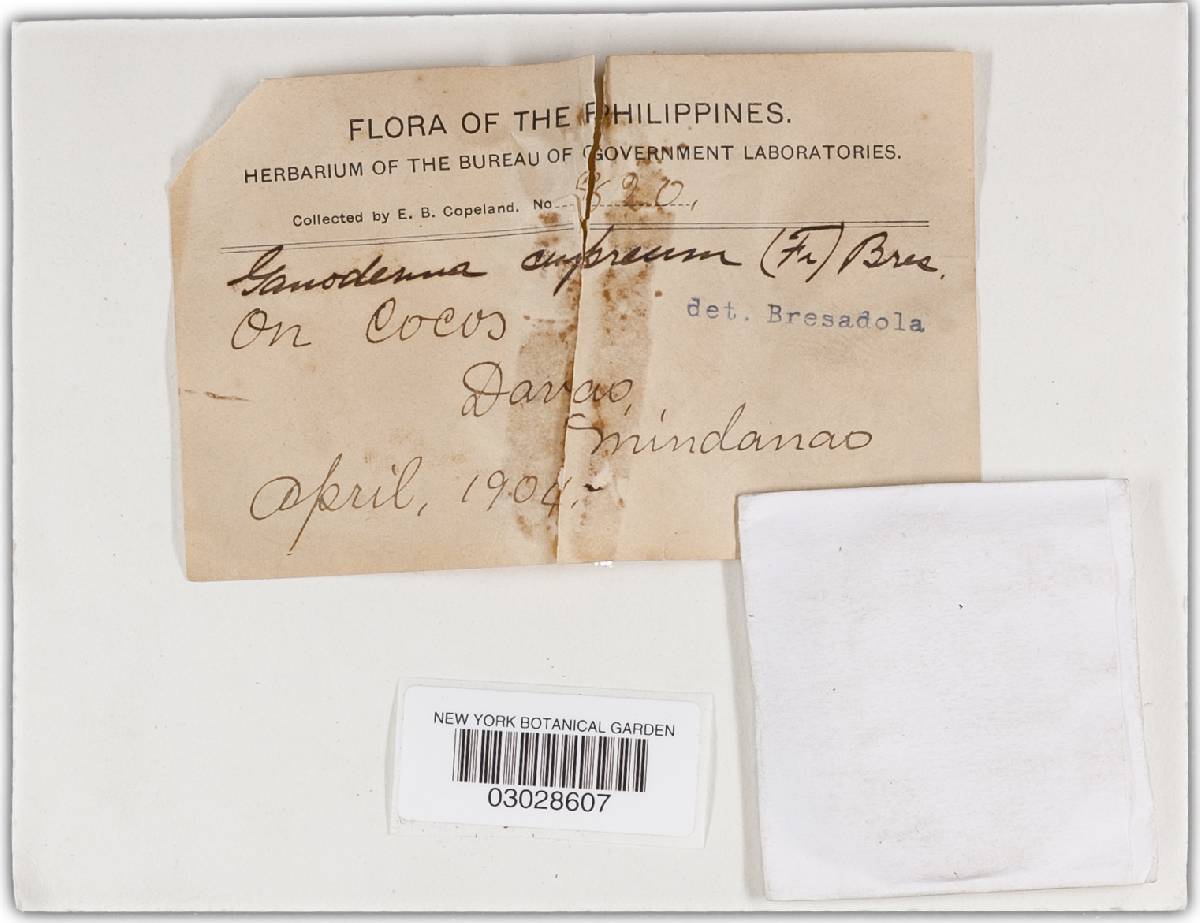 FLORA OF THE PHILIPPINES.
HERBARIUM OF THE BUREAU OF GOVERNMENT LABORATORIES.
Collected by E. B. Copeland. No.
Ganoderma cupreum (Fr) Bres.
On Cocos
det. Bresadola
Davao,
Mindanao
April, 1904.
NEW YORK BOTANICAL GARDEN
03028607